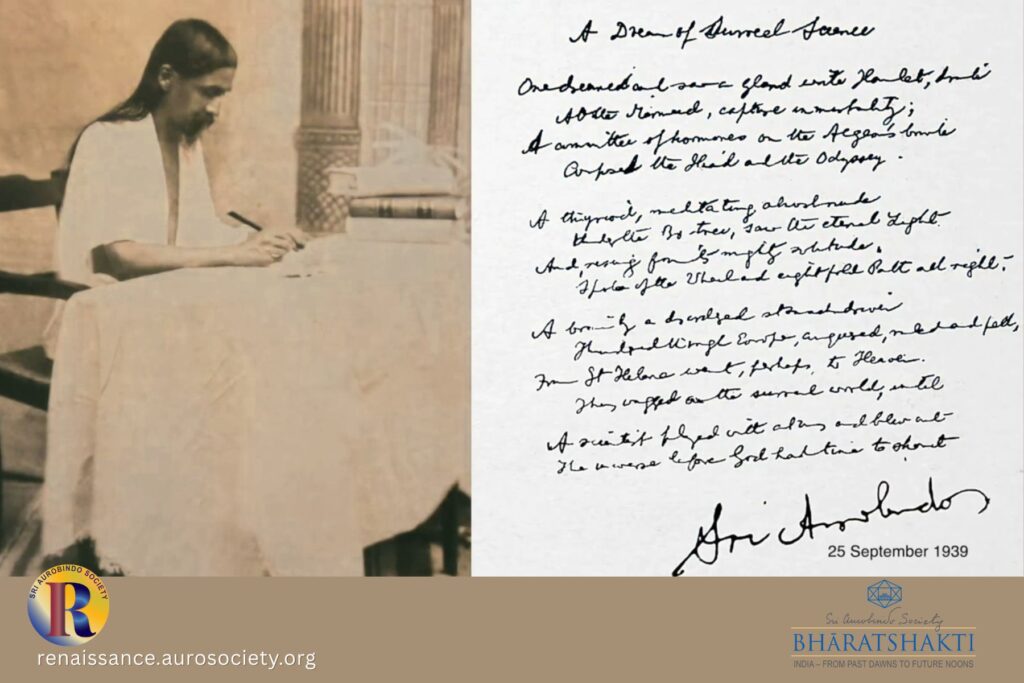 A Dream of Surreal Science
One dreamed and saw a gland write Hamlet, drink
At the Mermaid, capture immortality;
A committee of hormones on the Aegean's brink
Composed the Iliad and the Odyssey.
A thyroid, meditating almost nude
Under the Bo-tree, saw the eternal Light
And, rising from its mighty solitude,
Spoke of the Wheel and eightfold Path all right.
A brain by a disordered stomach driven
Thundered through Europe, conquered, ruled and fell,
From St Helena went, perhaps, to Heaven.
Thus wagged on the surreal world, until
A scientist played with atoms and blew out
The universe before God had time to shout
Sri Aurobindo
25 September 1939
SRI AUROBINDO SOCIETY
R
renaissance.aurosociety.org
Sri Aurobindo Society
BHĀRATSHAKTI
INDIA – FROM PAST DAWNS TO FUTURE NOONS